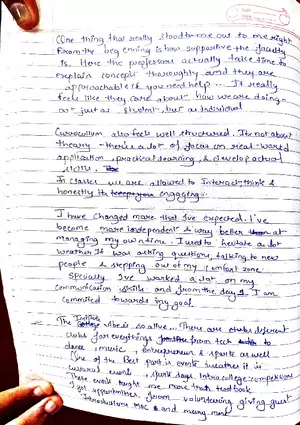 One thing that really stood to one out to me right
From the beginning is how supportive the faculty
is. Here the professors actually take time to
explain concept thoroughly and they are
approachable if you need help... It really
feels like they care about how we are doing
not just as student, but as individual
Curriculum also feel well structured. Its not about
theory - there's a lot of focus on real-world
application, practical learning, & develop actual
skills.
In classes we are allowed to Interact, think &
honestly its engaging.
I have changed more that I've expected. I've
become more independent & way better at
managing my own time. I used to hesitate a lot
weather it was asking questions, talking to new
people & stepping out of my comfort zone
Specially I've worked a lot on my
communication skills and from the day 1, I am
commited towards my goal.
The vibe is so alive... There are clubs diferent
clubs for everythings from tech to
dance, music, entrepreneur & sports as well
One of the Best part is events weather it is
cultural events, spark days Intra college competitions
These events taught me more than textbook
opportunities, from volunteering giving guest
introductions and many more